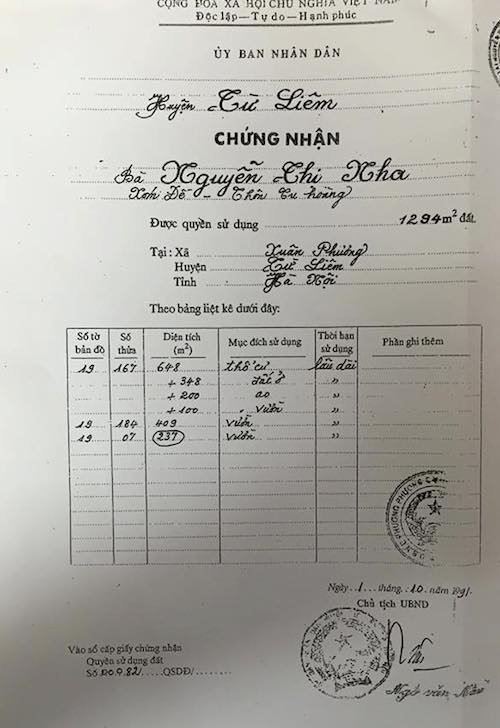 CỘNG HÒA XÃ HỘI CHỦ NGHĨA VIỆT NAM
Độc lập — Tự do — Hạnh phúc
ỦY BAN NHÂN DÂN
Huyện Từ Liêm
CHỨNG NHẬN
Bà Nguyễn Thị Nha
Xóm Đề - Thôn Tu hoàng
Được quyền sử dụng 1294 m² đất.
Tại : Xã Xuân Phương
Huyện Từ Liêm
Tỉnh Hà Nội
Theo bảng liệt kê dưới đây:
Số tờ bản đồ Số thửa Diện tích (m²) Mục đích sử dụng Thời hạn sử dụng Phần ghi thêm
19 167 648 thổ cư lâu dài
+ 348 đất ở "
+ 200 ao "
+ 100 vườn "
19 184 409 vườn "
19 07 237 vườn "
Ngày 1 tháng 10 năm 1991
Chủ tịch UBND
Vào sổ cấp giấy chứng nhận
Quyền sử dụng đất
Số QSDĐ/
Ngô văn